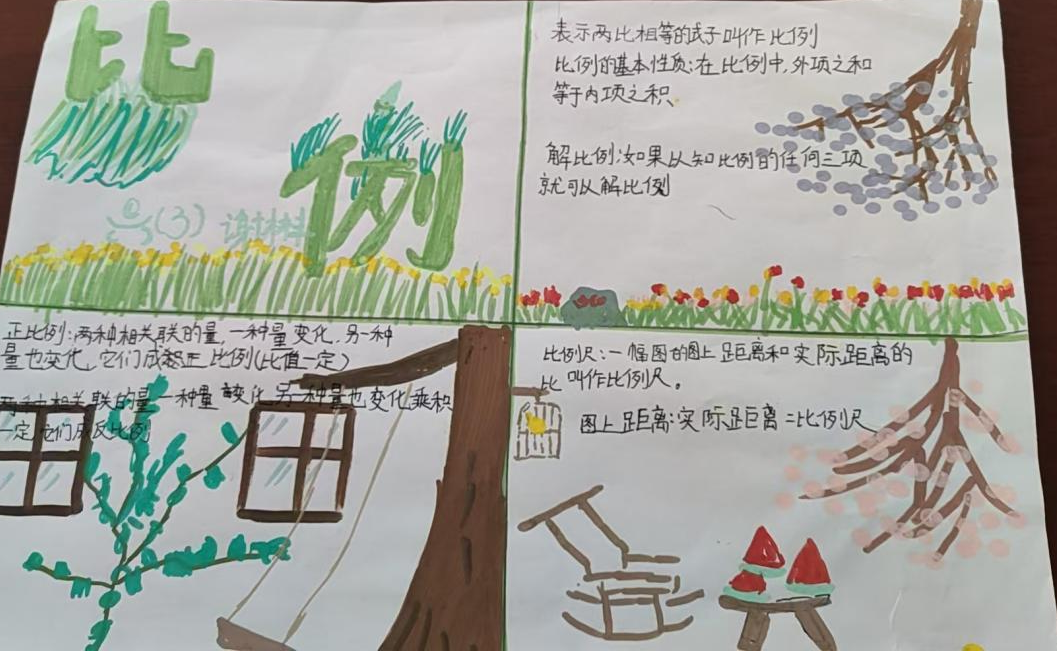 比
例
六(3) 谢
表示两比相等的式子叫作比例
比例的基本性质:在比例中,外项之和
等于内项之积.
解比例:如果以知比例的任何三项
就可以解比例
正比例:两种相关联的量,一种量变化.另一种
量也变化,它们成正比例(比值一定)
两种相关联的量一种量变化另一种量也变化乘积
一定,它们成反比例
比例尺:一幅图的图上距离和实际距离的
比叫作比例尺。
图上距离:实际距离=比例尺